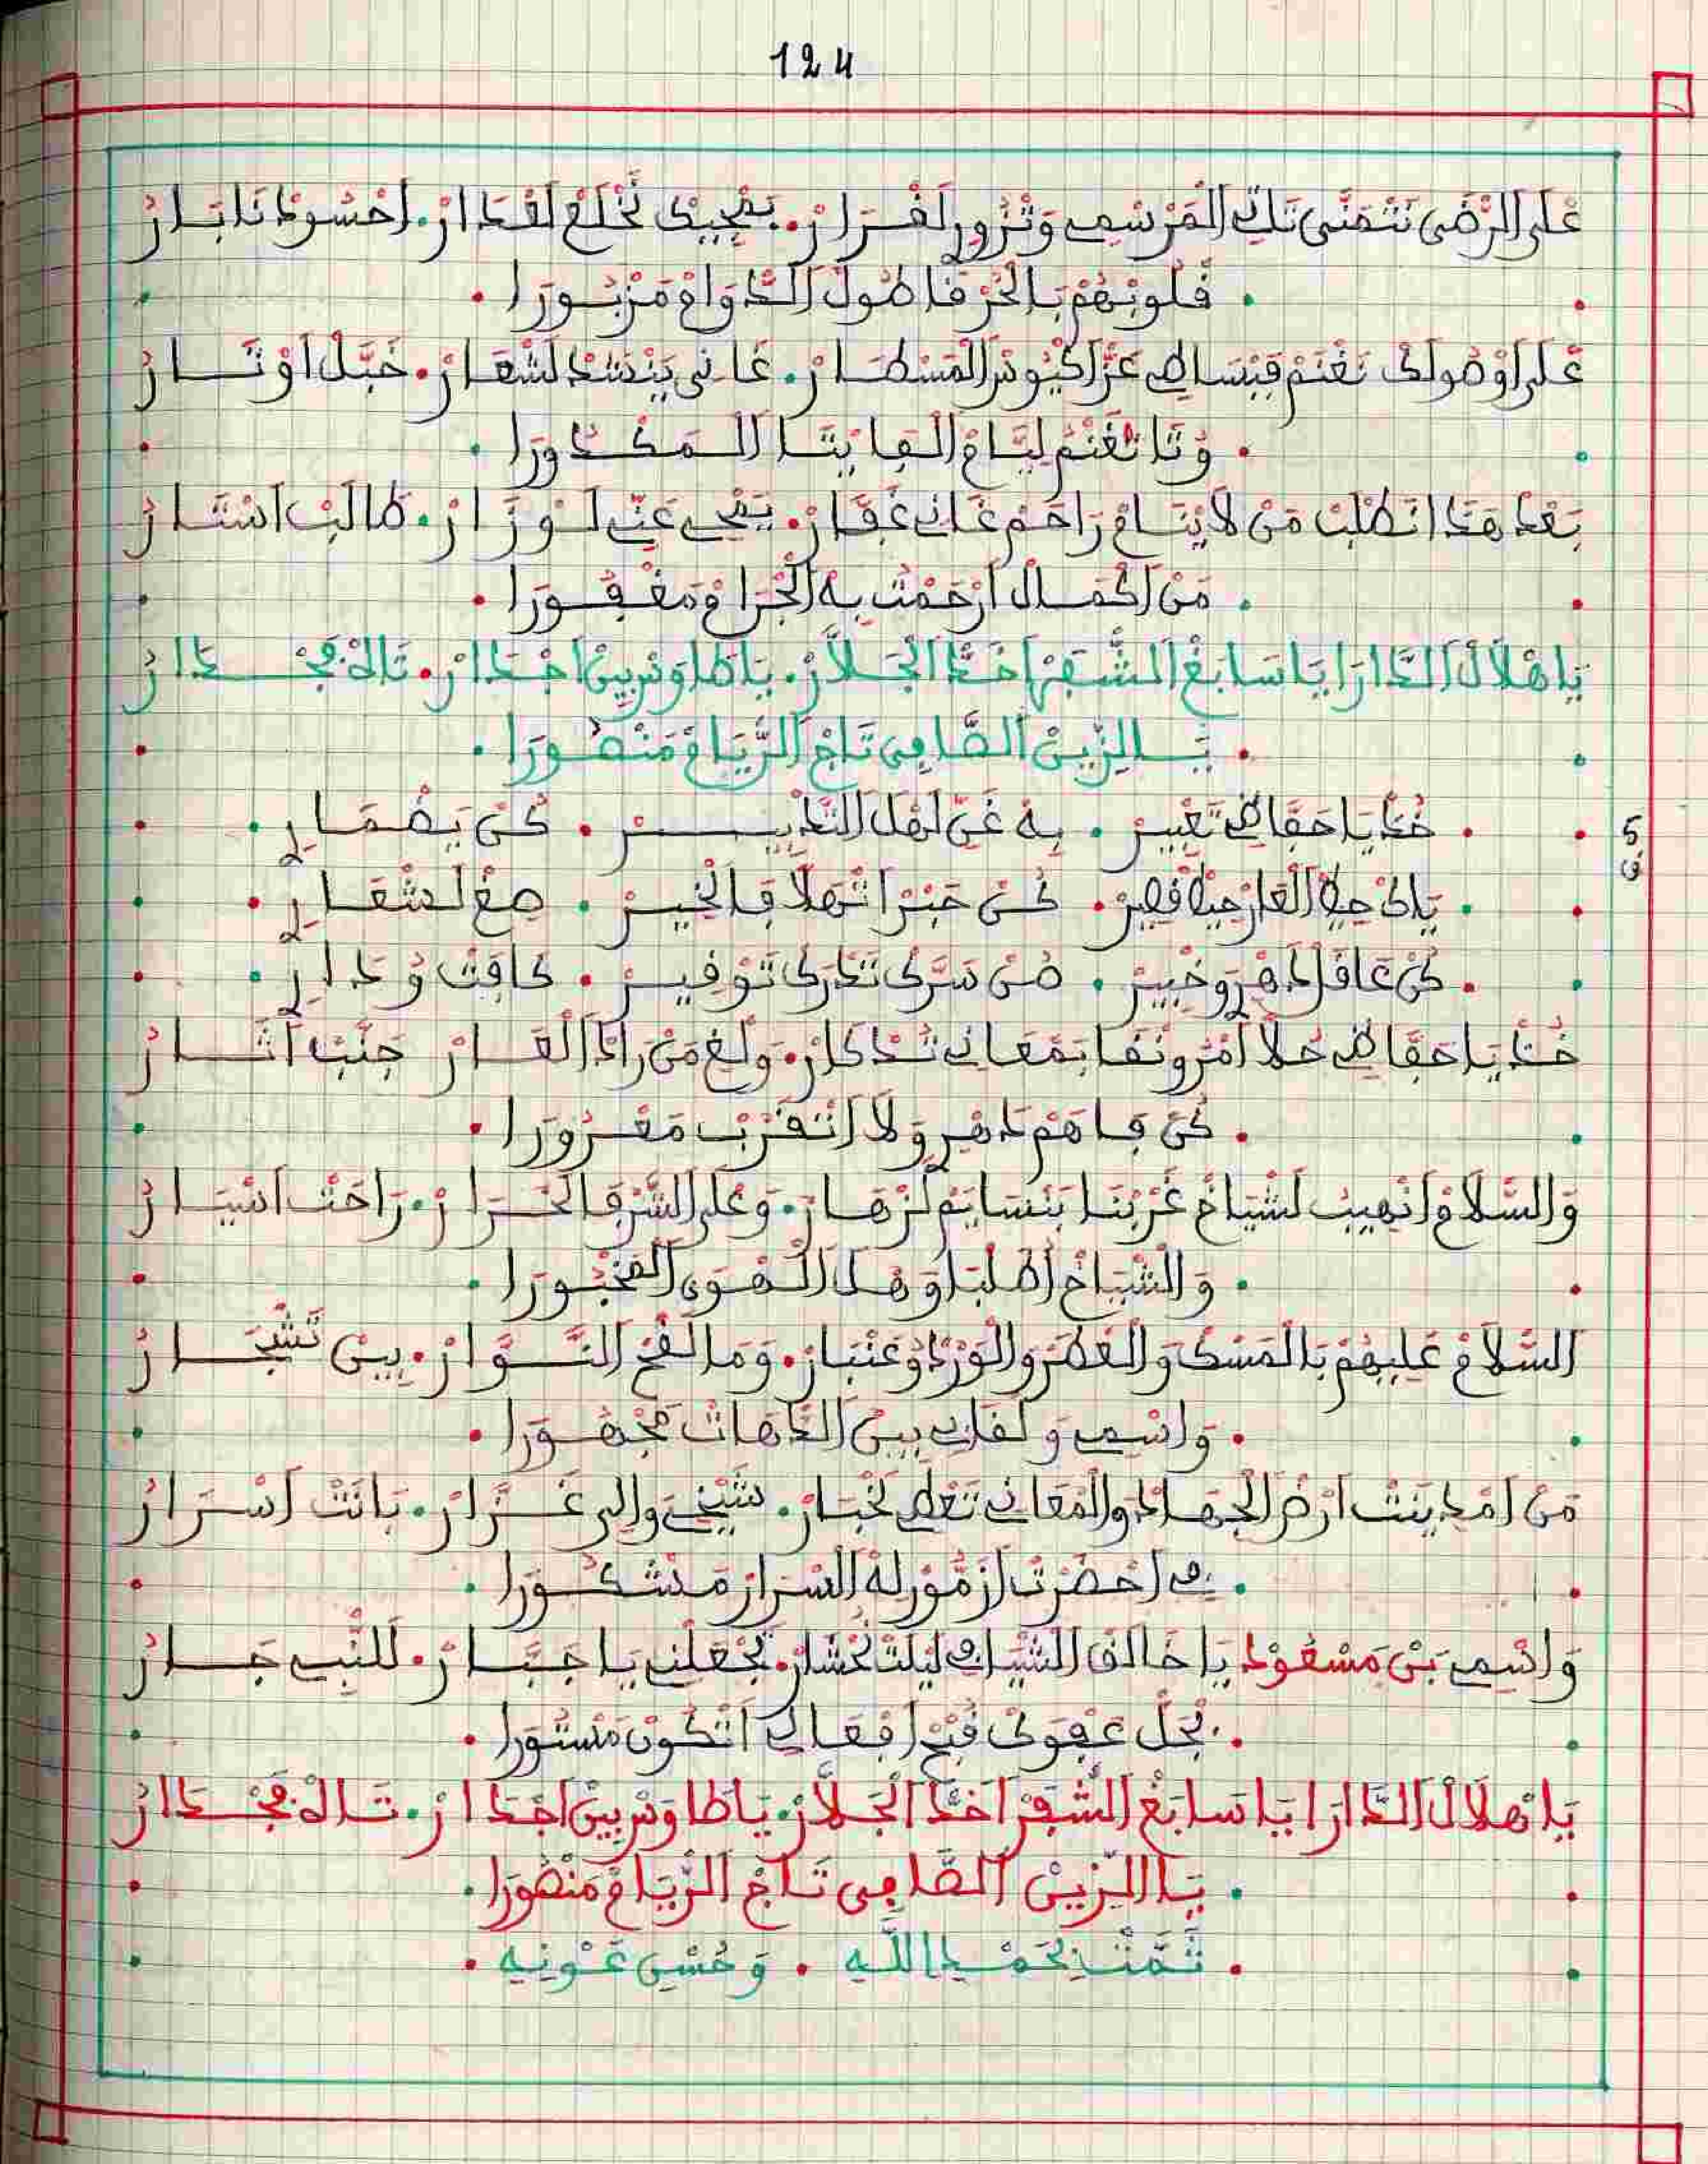 124
عْلَى الرّْضَى نَتْمَنَّى تَاتِي الْمَرْسْمِي وَتْزُورْ لَفْرَارْ. بَمْجِيكْ نَخْلَعْ لَعْدَارْ. احْسُودْنَا بَارْ
. قْلُوبْهُمْ بَالْحَرْقَا طُولْ الدْوَامْ مَزْبُورَا .
عْلَى اوْصُولَكْ نَغْنَمْ فَبْسَاطِي عَزّْ اكْيُوسْ الْمَسْطَارْ. غَانِي يَنْشَدْ لَشْعَارْ. خَبَّلْ اوْتَارْ
. وُنَا نَغْنَمْ لِيَّامْ الْفَايْتَا الْمَكْدُورَا .
بَعْدْ هَدَا نَطْلَبْ مَنْ لَا يْنَامْ رَاحَمْ غَانِي غَفَّارْ. يَمْحِي عَنِّي لَوْزَارْ. طَالَبْ اسْتَارْ
. مَنْ اكْمَالْ ارْحَمْتُ بِهْ الْجْرَامْ مَغْفُورَا .
يَا هْلَالْ الدَّارَا يَا سَابَغْ الشّْفَرْ اخَدّْ الْجَلَّارْ. يَا طَاوَسْ بِينْ اجْدَارْ. تَاهْ فَجْدَارْ
. يَا الزِّينْ الصَّافِي تَاجْ الرّْيَامْ مَنْصُورَا .
5 ق
. خُدْ يَا حَفَّاضِي تَعْبِيرْ . بِهْ غَنِّي لَهْلْ التَّدْبِيرْ . كُنْ يَضْمَارِي .
. يَاكْ حِيطْ الْعَارْ حِيطْ قْصِيرْ . كُنْ حَبْرْ اتْهَلَّا فَالْخِيرْ . صِغْ لَشْعَارِي .
. كُنْ عَاقَلْ دَهْرْ وَخْبِيرْ . صُنْ سَرَّكْ تَدْرَكْ تَوْقِيرْ . كَافَتْ وُدَارِي .
خُدْ يَا حَفَّاضِي حُلَّا امْرُونْقَا بَمْعَانِي تَدْكَارْ. وَلْغِ مَنْ رَادْ الْعَارْ جَنَّبْ آتَارْ
. كُنْ فَاهَمْ دَاهِي وَلَا اتْقَرَّبْ مَغْرُورَا .
وَالسّْلَامْ انْهِيبْ لَشْيَاخْ غَرْبْنَا بَنْسَايَمْ لَزْهَارْ. وَعْلَى الشُّرْفَا لَحْرَارْ. رَاحَتْ اسْيَارْ
. وَالشّْيَاخْ اطُلْبَا وَهْلْ الْهْوَى الْمَخْبُورَا .
السّْلَامْ عْلِيهُمْ بَالْمَسْكْ وَالْعْطَرْ وَالْوَرْدْ وُعَنْبَارْ. وَمَا لْقَحْ النُّوَّارْ. بِينْ تَشْجَارْ
. وَاسْمِي وَلَقَابِي بِينْ الدّْهَاتْ مَجْهُورَا .
مَنْ امْدِينَتْ ارْضْ الْجْهَادْ وَالْمْعَانِي تَعْطِي لَخْبَارْ. شَيْخِي وَالِي عَزَّارْ. بَانَتْ اسْرَارْ
. فِي احَضْرَتْ ازَمُّورْ لهْ السْرَارْ مَشْكُورَا .
وَاسْمِي بَنْ مَسْعُودْ يَا خَالَقْ الشْيَا فِي لِيلْتْ لَحْشَارْ. تَجْعَلْنِي يَا جَبَّارْ. لَلنّْبِي جَارْ
. بَجَلّْ عَفْوَكْ قُبْحْ افْعَالِي اتْكُونْ مَسْتُورَا .
يَا هْلَالْ الدَّارَا يَا سَابَغْ الشّْفَرْ اخَدّْ الْجَلَّارْ. يَا طَاوَسْ بِينْ اجْدَارْ. تَاهْ فَجْدَارْ
. يَا الزِّينْ الصَّافِي تَاجْ الرّْيَامْ مَنْصُورَا .
. تَمَّتْ بِحَمْدِ اللَّهِ . وَحُسْنِ عَوْنِهِ .